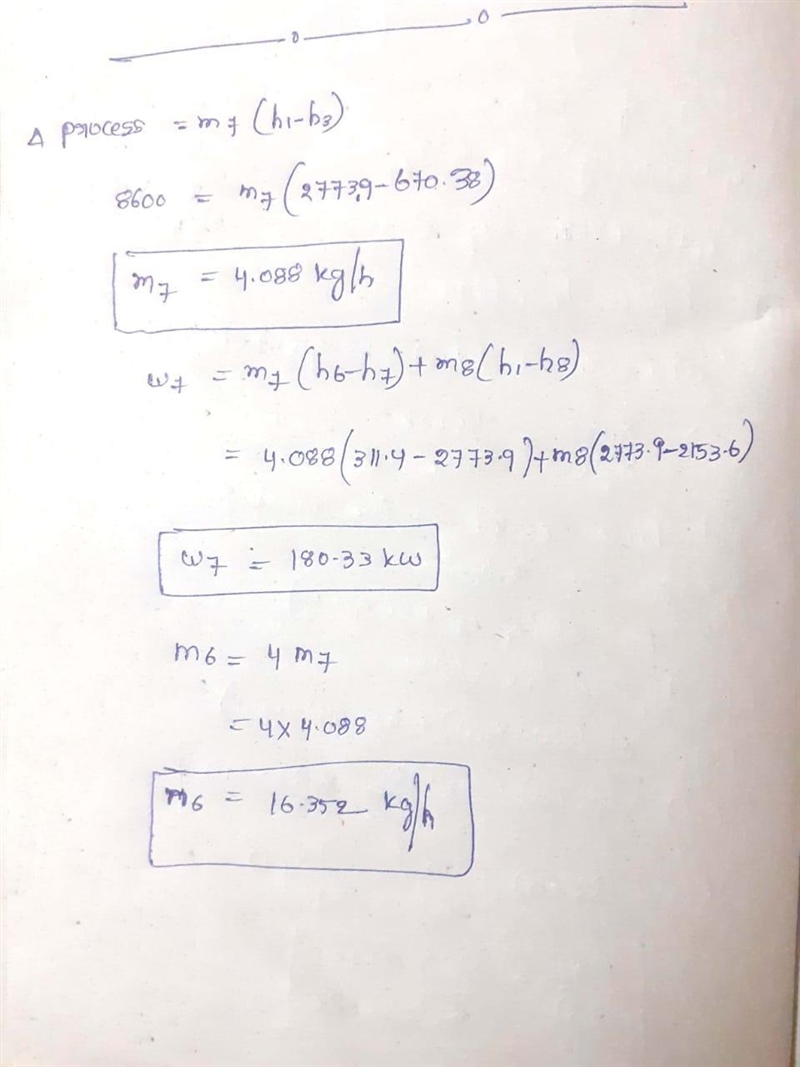 Δ process = m7 (h1-h3)
8600 = m7 (2773.9-670.38)
m7 = 4.088 kg/h
w7 = m7 (h6-h7)+m8(h1-h8)
= 4.088(311.4-2773.9)+m8(2773.9-2153.6)
w7 = 180.33 kw
m6 = 4 m7
= 4×4.088
m6 = 16.352 kg/h